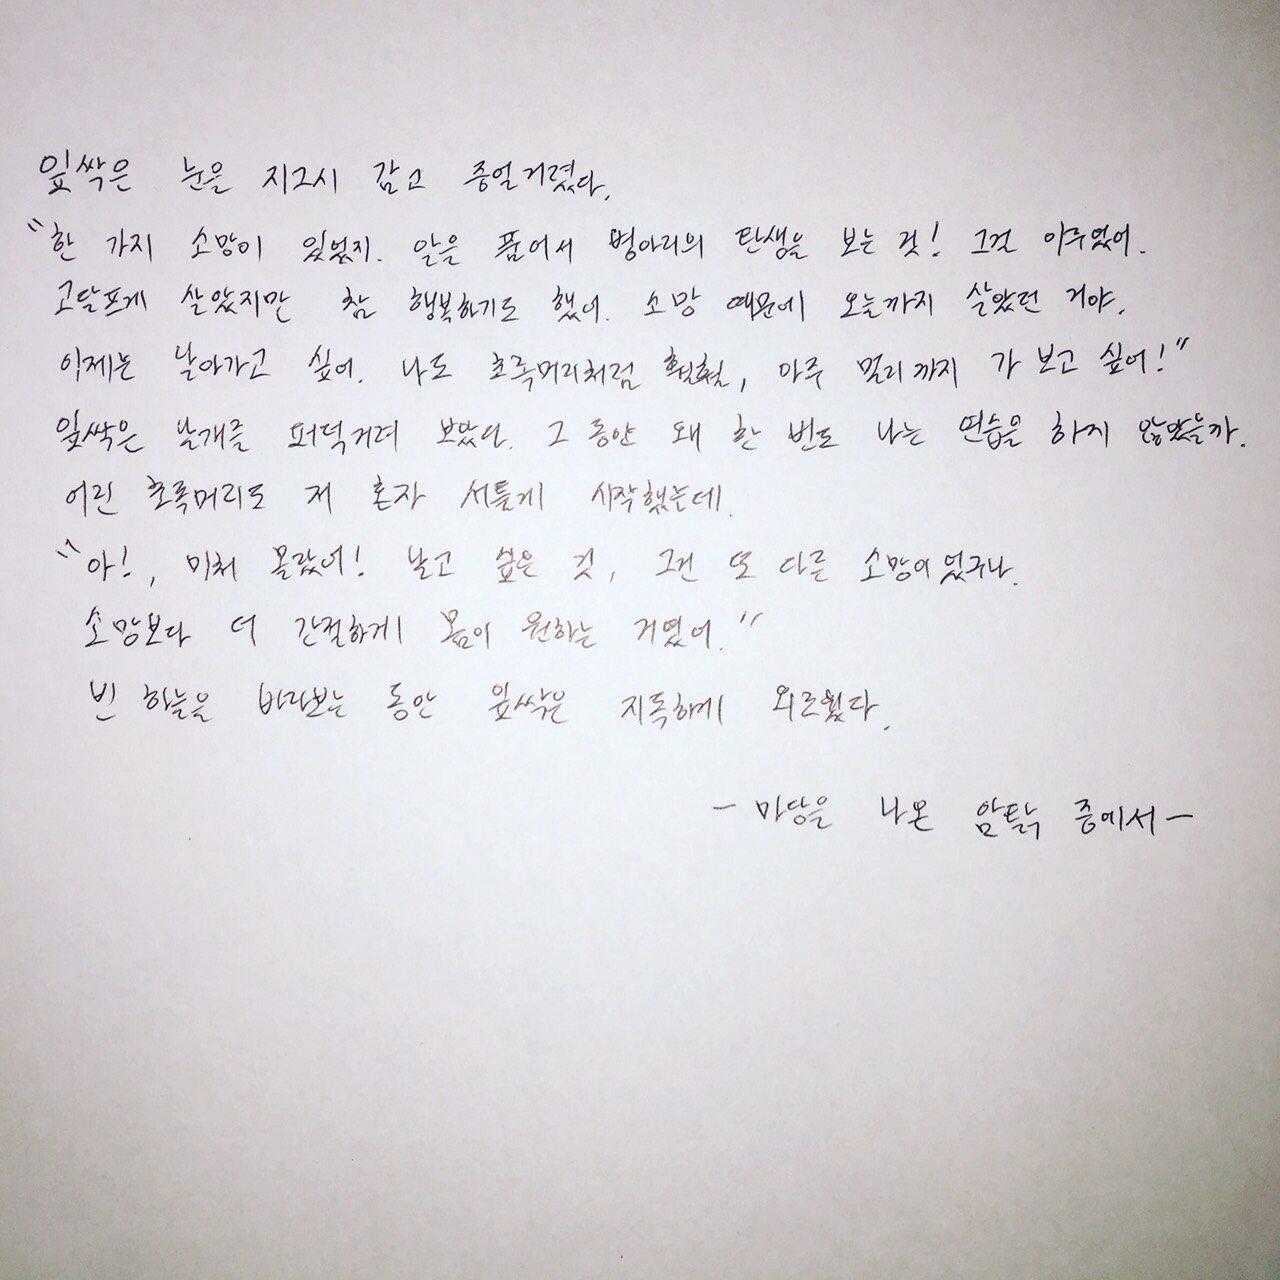 잎싹은 눈을 지그시 감고 중얼거렸다.
"한 가지 소망이 있었지. 알을 품어서 병아리의 탄생을 보는 것! 그걸 이루었어.
고달프게 살았지만 참 행복하기도 했어. 소망 때문에 오늘까지 살았던 거야.
이제는 날아가고 싶어. 나도 초록머리처럼 훨훨, 아주 멀리까지 가 보고 싶어!"
잎싹은 날개를 퍼덕거려 보았다. 그 동안 왜 한 번도 나는 연습을 하지 않았을까.
어린 초록머리도 저 혼자 서툴게 시작했는데.
"아!, 미처 몰랐어! 날고 싶은 것, 그건 또 다른 소망이었구나.
소망보다 더 간절하게 몸이 원하는 거였어."
빈 하늘을 바라보는 동안 잎싹은 지독하게 외로웠다.
- 마당을 나온 암탉 중에서 -